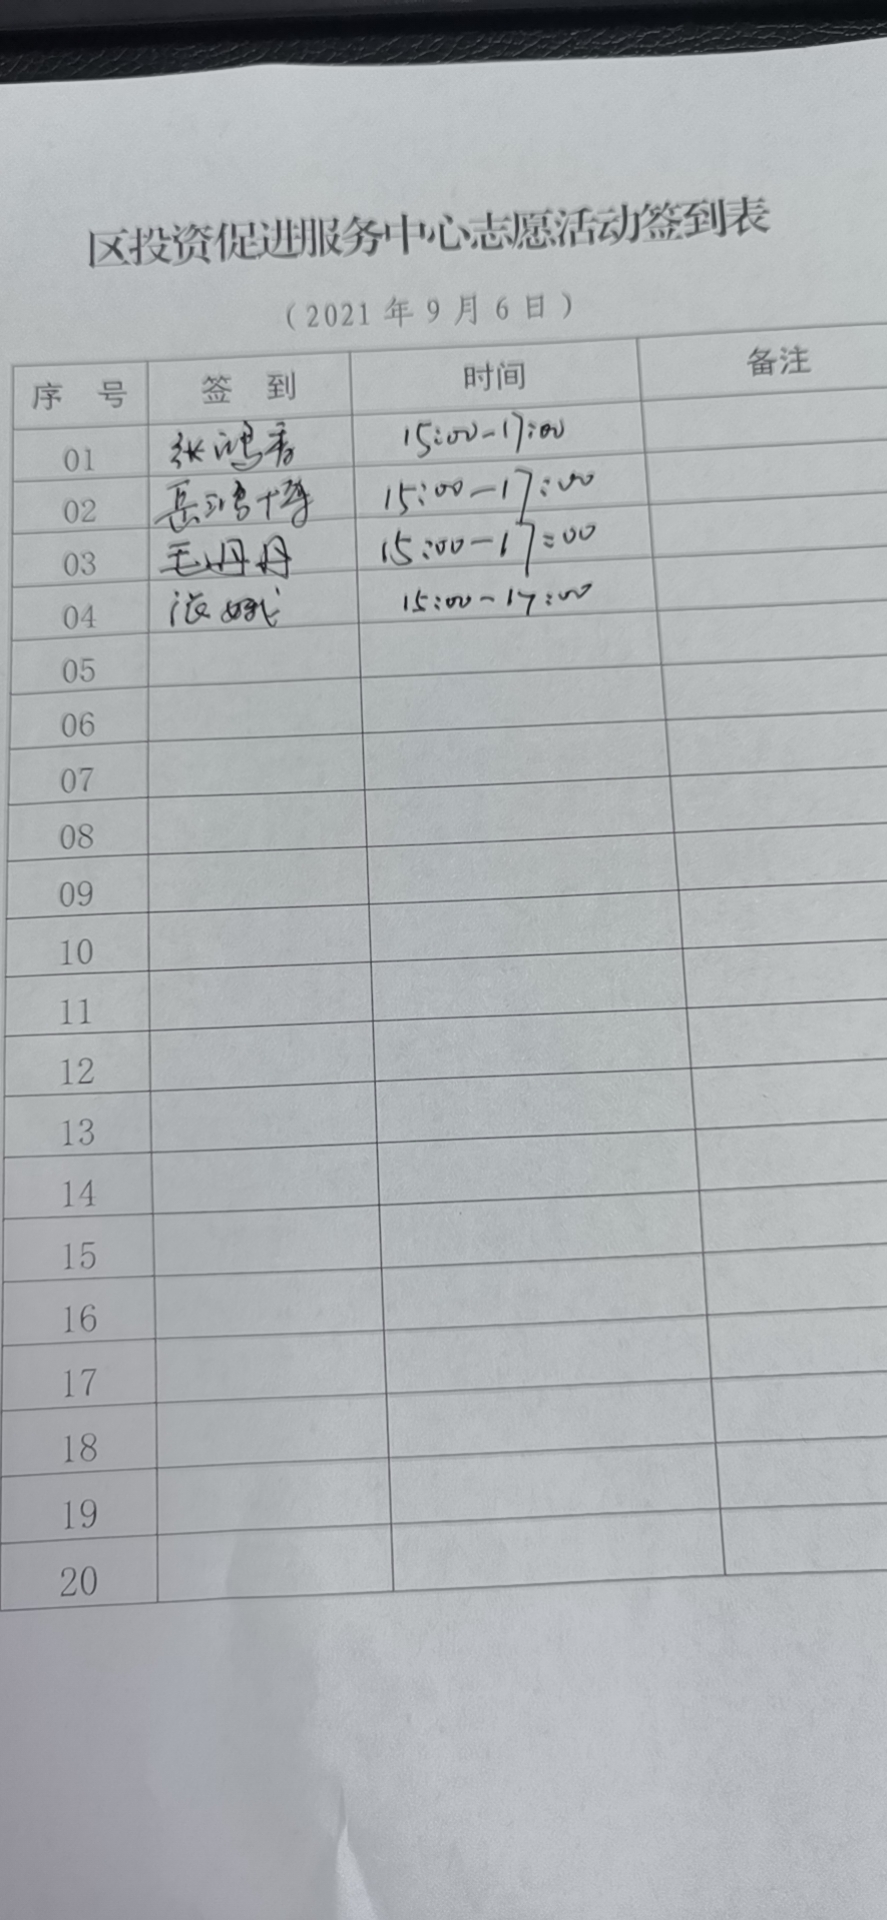 区投资促进服务中心志愿活动签到表
（2021年9月6日）
序 号 签 到 时间 备注
01 张鸿秀 15:00-17:00
02 岳鸿博 15:00-17:00
03 毛丹丹 15:00-17:00
04 15:00-17:00
05
06
07
08
09
10
11
12
13
14
15
16
17
18
19
20